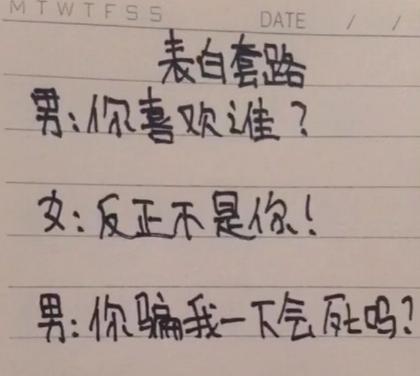 M T W T F S S DATE / /
表白套路
男:你喜欢谁?
女:反正不是你!
男:你骗我一下会死吗?